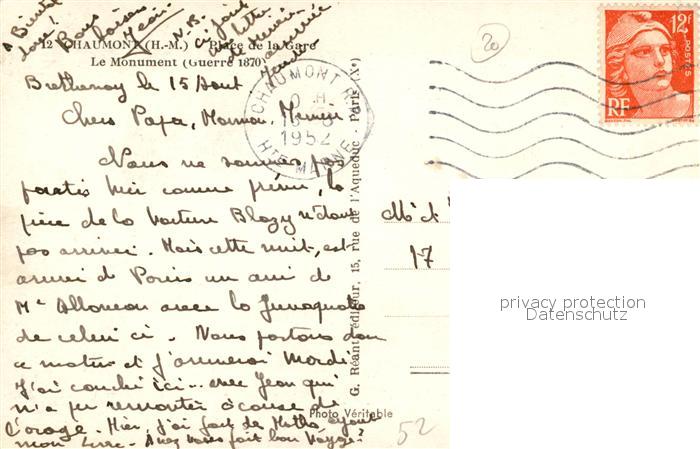 à Bientôt
Bons baisers
Jean
N.B.
ci joint
lettre
12 CHAUMONT (H.-M.) - Place de la Gare
Le Monument (Guerre 1870)
Brethenay le 15 Aout
Chers Papa, Maman, Memée
Nous ne sommes pas
partis hier comme prévu, la
pièce de la voiture Blazy n'étant
pas arrivée. Mais cette nuit, est
arrivé de Paris un ami de
Mr avec la
de celui ci. Nous partons donc
ce matin et j'arriverai Mardi
J'ai couché ici... avec Jean qui
n'a pu remonter à cause de
l'orage. Hier, j'ai fait des Maths ayant
mon livre. Avez vous fait bon voyage?
Photo Véritable
G. Réant, éditeur, 15, rue de l'Aqueduc - Paris (Xe)
CHAUMONT R.P.
1952
HTE MARNE
20
12F
POSTES
RF
17
52
privacy protection
Datenschutz